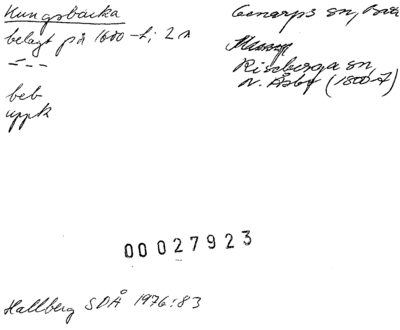 Kungsbäcka
belagt på 1600-t; 2 n
beb
uppk
Genarps sn, Bara
Riseberga sn,
N. Åsbo (1800-t)
00027923
Hallberg SDÅ 1976:83